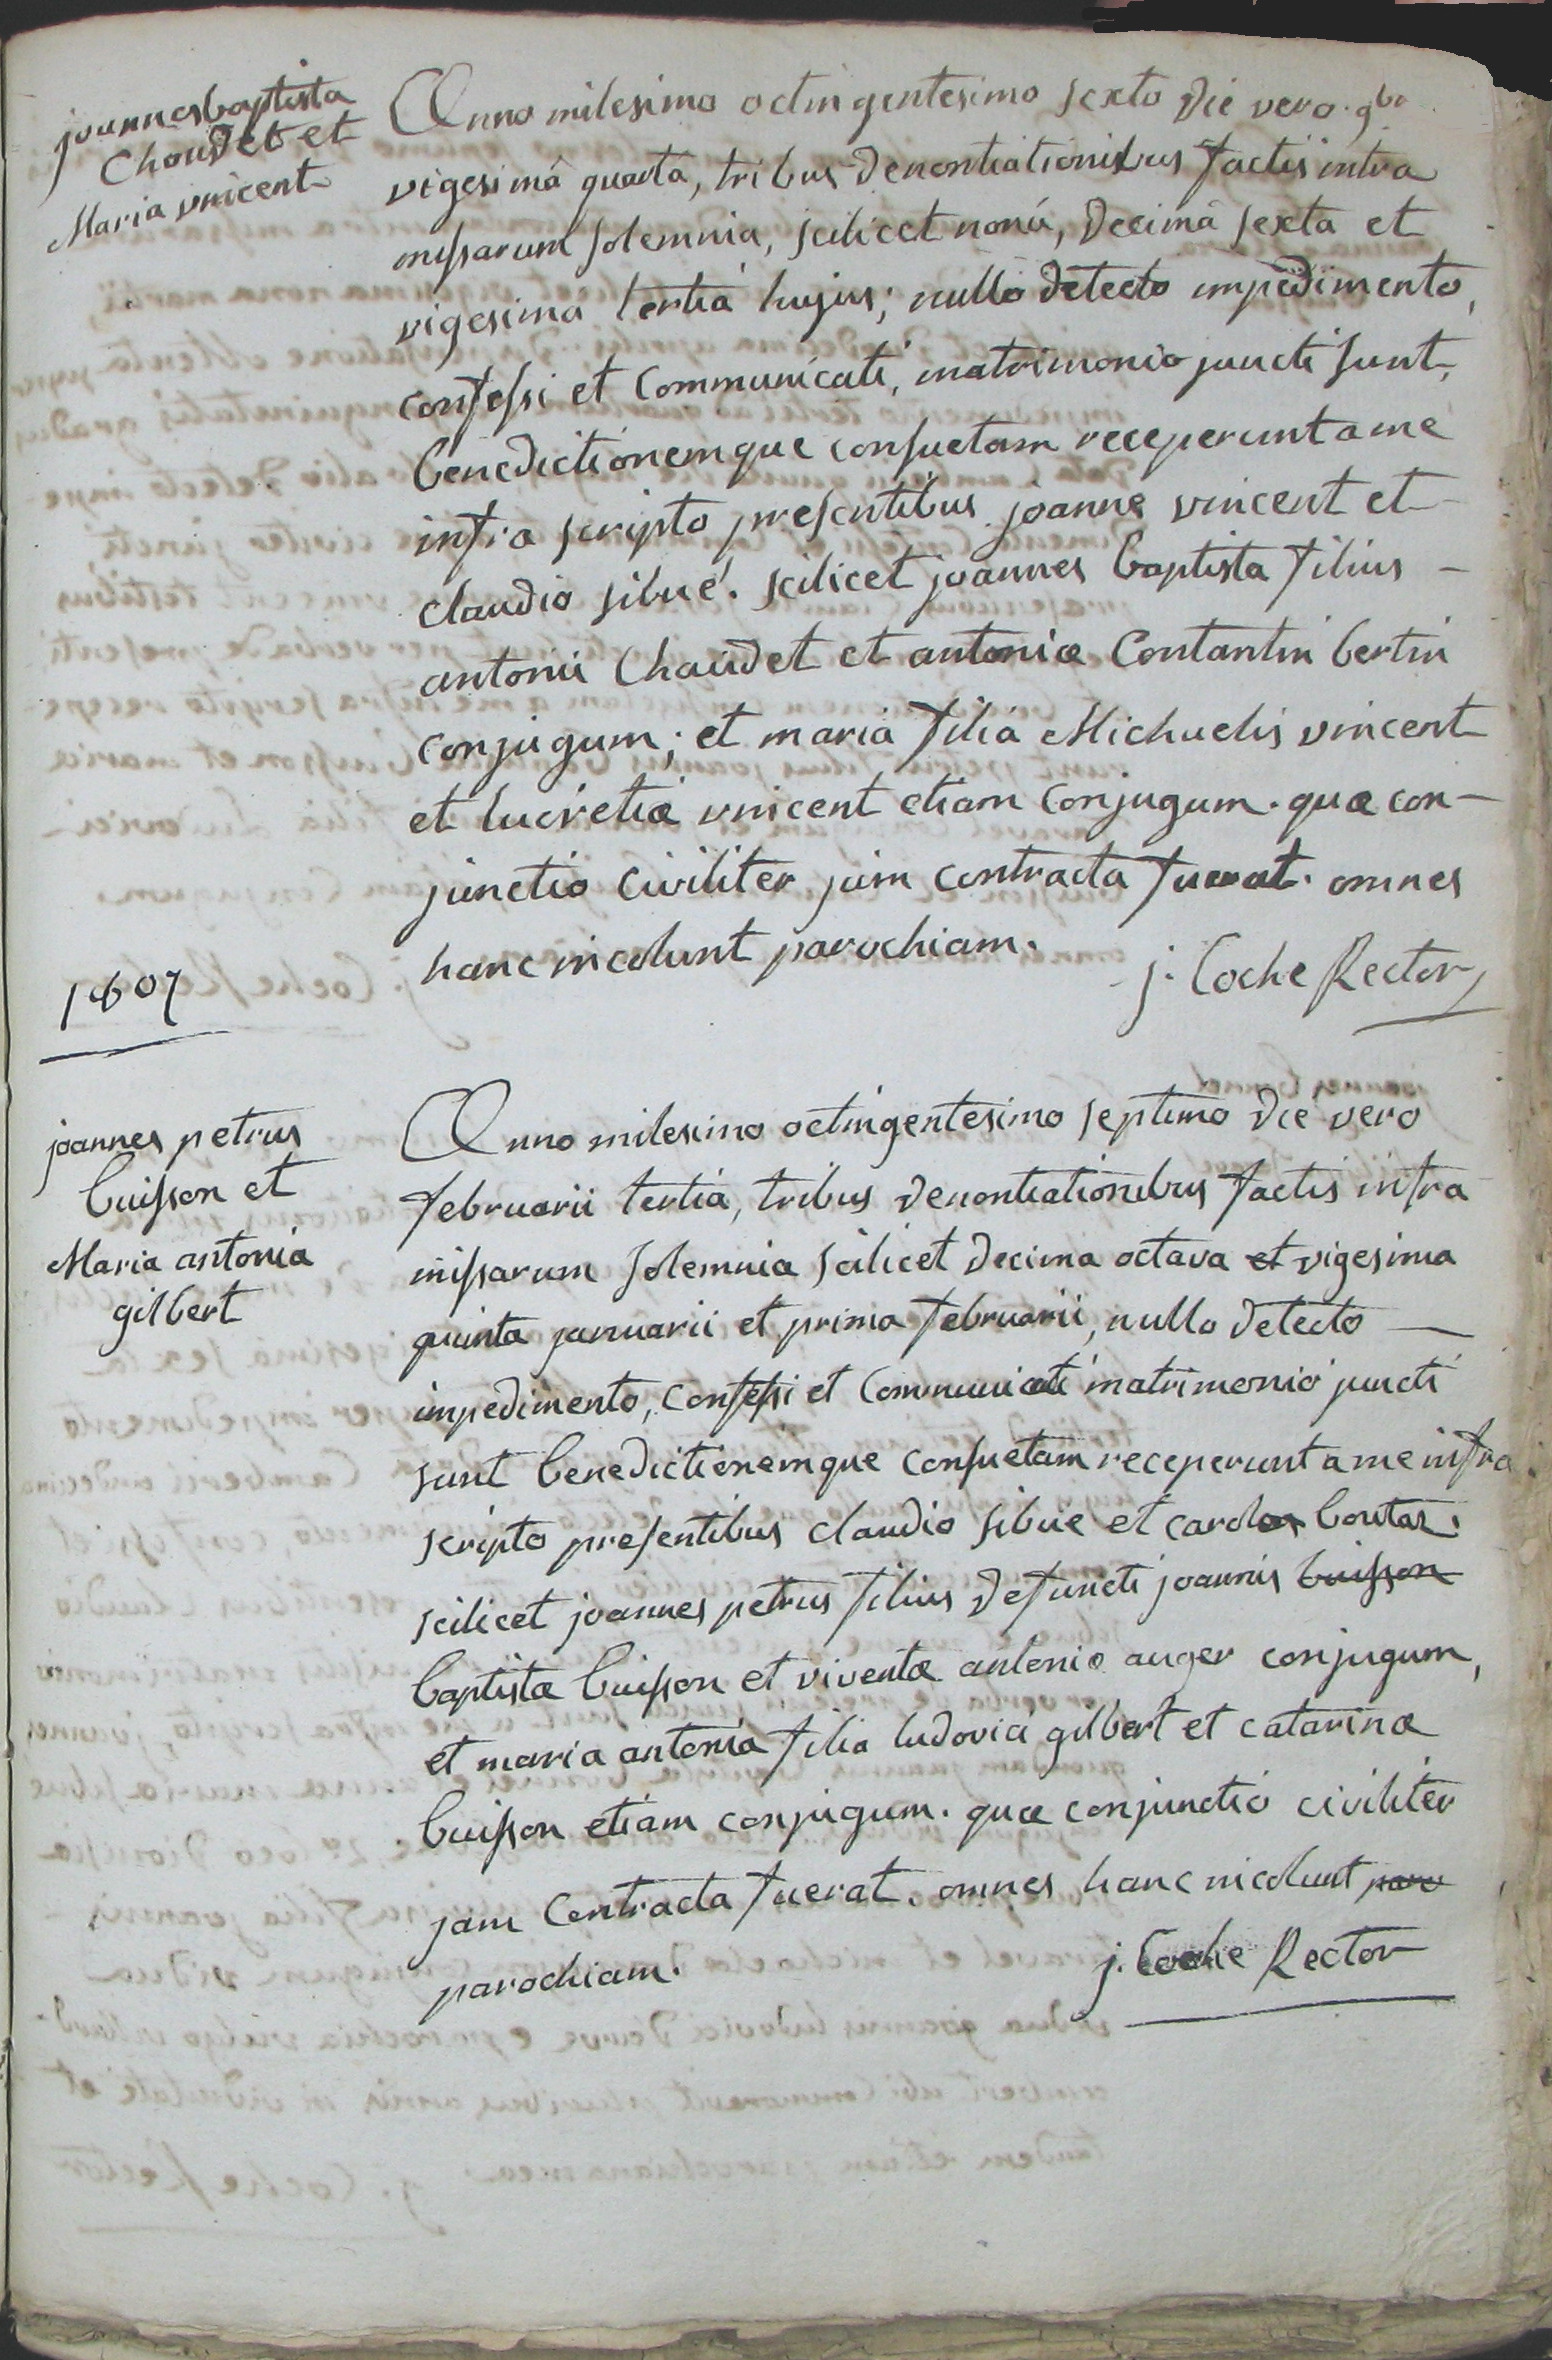 joannes baptista
Choudet et
Maria vincent
Anno milesimo octingentesimo sexto die vero 9br
vigesimâ quarta, tribus denontiationibus factis intra
missarum solemnia, scilicet nonâ, decimâ sexta et
vigesima tertiâ hujus; nullo detecto impedimento,
confessi et communicati, matrimonio juncti sunt,
benedictionemque consuetam receperunt a me
infra scripto presentibus joanne vincent et
claudio sibué. scilicet joannes baptista filius -
antonii Chaudet et antoniæ Contantin bertin
conjugum; et mariâ filiâ Michaelis vincent
et lucretiæ vincent etiam conjugum. quæ con-
junctio civiliter jam contracta fuerat. omnes
hanc incolunt parochiam.
j. Coche Rector
1807
joannes petrus
buisson et
Maria antonia
gilbert
Anno milesimo octingentesimo septimo die vero
februarii tertia, tribus denontiationibus factis intra
missarum solemnia scilicet decima octava et vigesima
quinta januarii et prima februarii, nullo detecto —
impedimento, confessi et communicati matrimonio juncti
sunt benedictionemque consuetam receperunt a me infra
scripto presentibus claudio sibue et carolos boutaz.
scilicet joannes petrus filius defuncti joannis buisson
baptistæ buisson et viventæ antoniæ auger conjugum,
et maria antonia filia ludovici gilbert et catarinæ
buisson etiam conjugum. quæ conjunctio civiliter
jam contracta fuerat. omnes hanc incolunt paro
parochiam.
j. Coche Rector